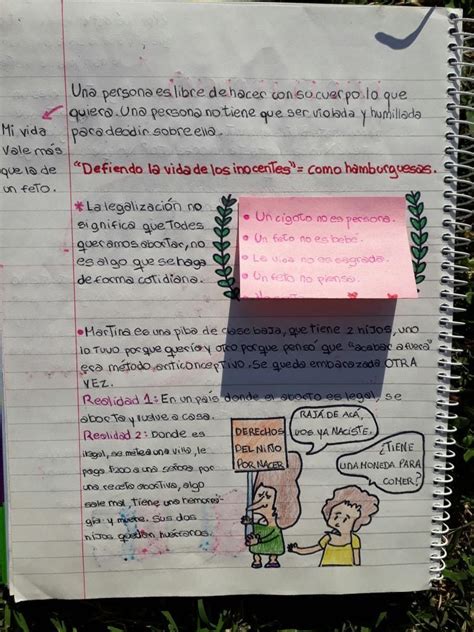 Una persona es libre de hacer con su cuerpo lo que
quiera. Una persona no tiene que ser violada y humillada
para decidir sobre ella.
Mi vida
vale más
que la de
un feto.
"Defiendo la vida de los inocentes" = como hamburguesas.
* La legalización no
significa que todes
queramos abortar, no
es algo que se haga
de forma cotidiana.
• Un cigoto no es persona.
• Un feto no es bebé.
• La vida no es sagrada.
• Un feto no piensa.
• Martina es una piba de clase baja, que tiene 2 hijos, uno
lo tuvo porque quería y otro porque pensó que "acabar afuera"
era método anticonceptivo. Se queda embarazada OTRA
VEZ.
Realidad 1: En un país donde el aborto es legal, se
aborta y vuelve a casa.
Realidad 2: Donde es
ilegal, se
pago
una
sale mal, tiene una hemorra-
gia y muere. Sus dos
hijos quedan huérfanos.
DERECHOS
DEL NIÑO
POR NACER
RAJÁ DE ACÁ,
VOS YA NACISTE.
¿TIENE
UNA MONEDA PARA
COMER?